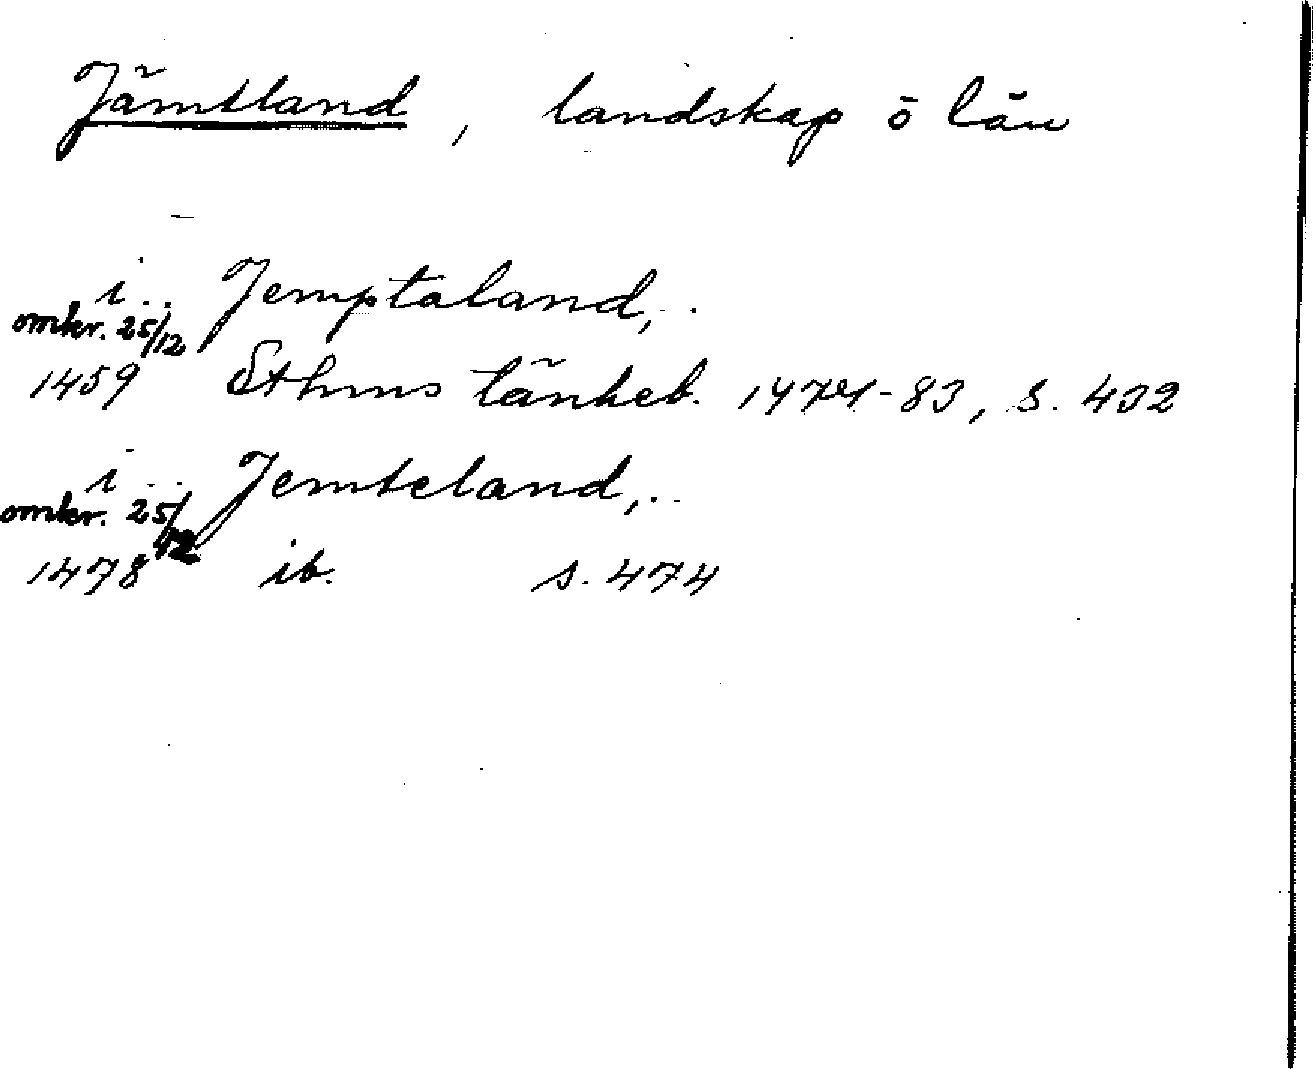 Jämtland, landskap o län
i .. Jemptaland, ..
omkr. 25/12
1459 Sthms tänkeb. 1474-83, s. 402
i .. Jemteland, ..
omkr. 25/12
1478 ib. s. 474